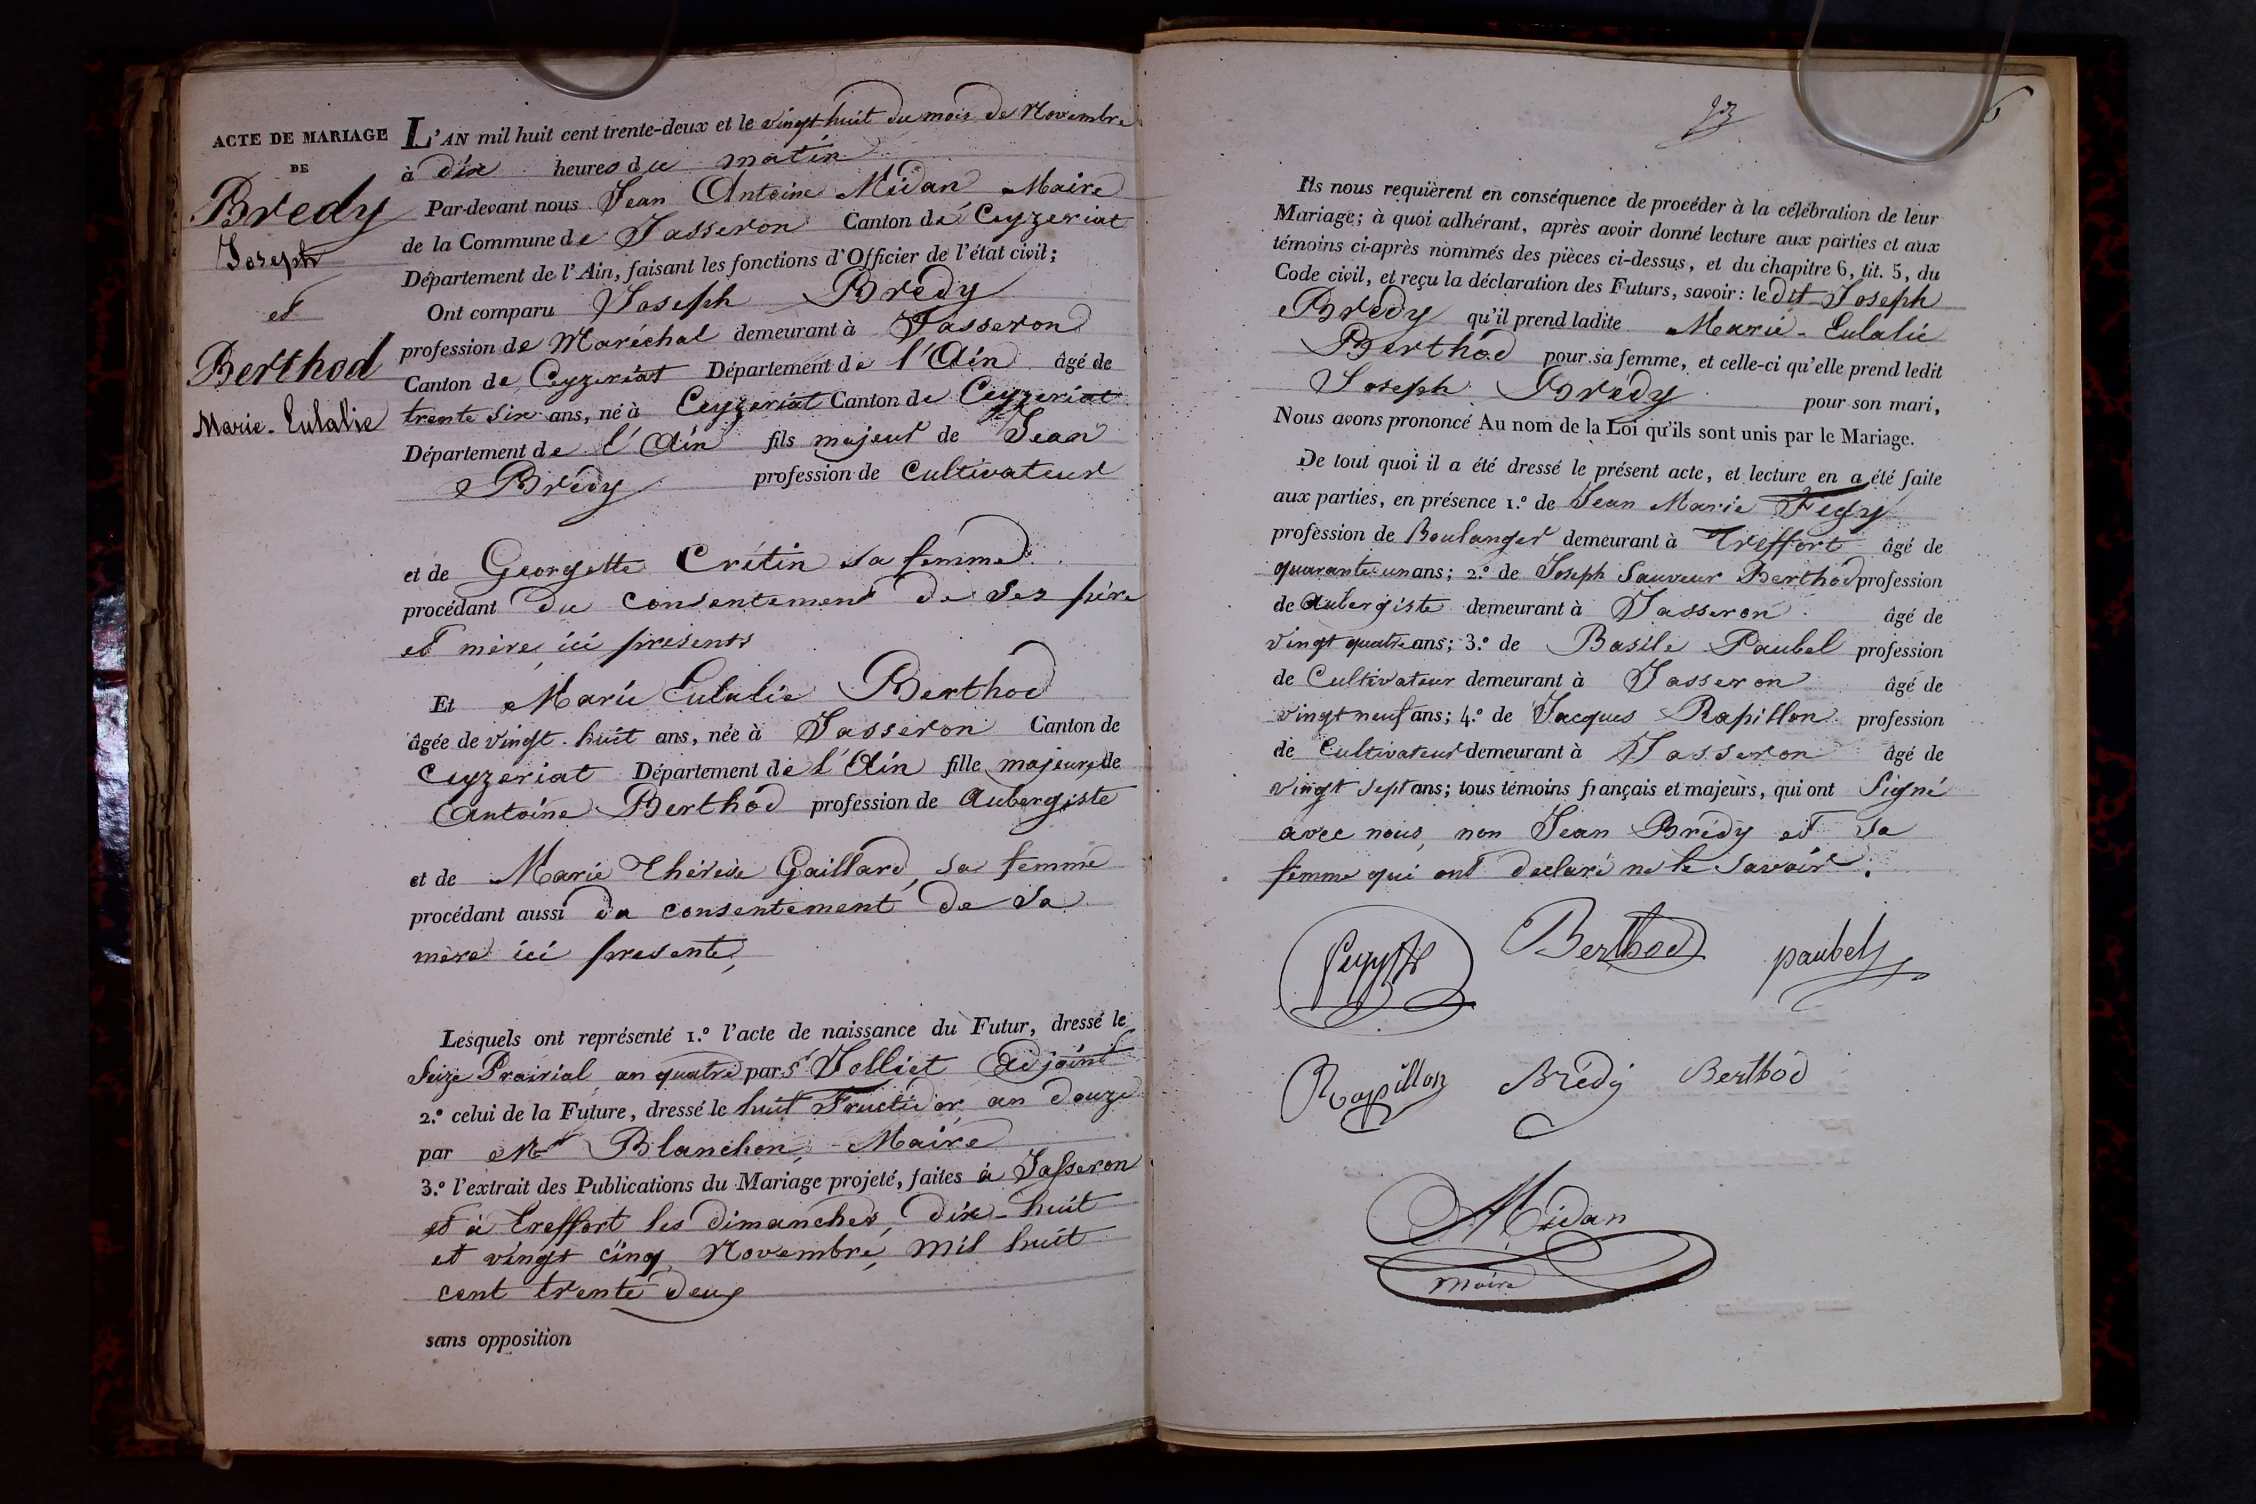 ACTE DE MARIAGE
DE
Bredy
Joseph
et
Berthod
Marie-Eulalie
L'AN mil huit cent trente-deux et le vingt huit du mois de Novembre
à dix heures du matin
Par-devant nous Jean Antoine Midan Maire
de la Commune de Jasseron Canton de Ceyzeriat
Département de l'Ain, faisant les fonctions d'Officier de l'état civil;
Ont comparu Joseph Brédy
profession de Maréchal demeurant à Jasseron
Canton de Ceyzeriat Département de l'Ain âgé de
trente six ans, né à Ceyzeriat Canton de Ceyzeriat
Département de l'Ain fils majeur de Jean
Brédy profession de Cultivateur
et de Georgette Crétin sa femme
procédant du consentement de ses père
et mère, ici presents
Et Marie Eulalie Berthod
âgée de vingt-huit ans, née à Jasseron Canton de
Ceyzeriat Département de l'Ain fille majeure de
Antoine Berthod profession de Aubergiste
et de Marie Thérèse Gaillard, sa femme
procédant aussi du consentement de sa
mère ici presente,
Lesquels ont représenté 1.º l'acte de naissance du Futur, dressé le
Seize Prairial an quatre par Sr Jolliet Adjoint
2.º celui de la Future, dressé le huit Fructidor, an douze
par Mr Blanchon, Maire
3.º l'extrait des Publications du Mariage projeté, faites à Jasseron
et à Treffort les dimanches, dix-huit
et vingt cinq Novembre, mil huit
cent trente deux
sans opposition
Ils nous requièrent en conséquence de procéder à la célébration de leur
Mariage; à quoi adhérant, après avoir donné lecture aux parties et aux
témoins ci-après nommés des pièces ci-dessus, et du chapitre 6, tit. 5, du
Code civil, et reçu la déclaration des Futurs, savoir: ledit Joseph
Brédy qu'il prend ladite Marie-Eulalie
Berthod pour sa femme, et celle-ci qu'elle prend ledit
Joseph Brédy pour son mari,
Nous avons prononcé Au nom de la Loi qu'ils sont unis par le Mariage.
De tout quoi il a été dressé le présent acte, et lecture en a été faite
aux parties, en présence 1.º de Jean Marie Fegy
profession de Boulanger demeurant à Treffort âgé de
quarante un ans; 2.º de Joseph Sauveur Berthod profession
de Aubergiste demeurant à Jasseron âgé de
vingt quatre ans; 3.º de Basile Paubel profession
de Cultivateur demeurant à Jasseron âgé de
vingt neuf ans; 4.º de Jacques Rapillon profession
de Cultivateur demeurant à Jasseron âgé de
vingt sept ans; tous témoins français et majeurs, qui ont Signé
avec nous, non Jean Brédy et sa
femme qui ont declaré ne le savoir.
Berthod paubel
Rapillon Brédy Berthod
Midan
Maire